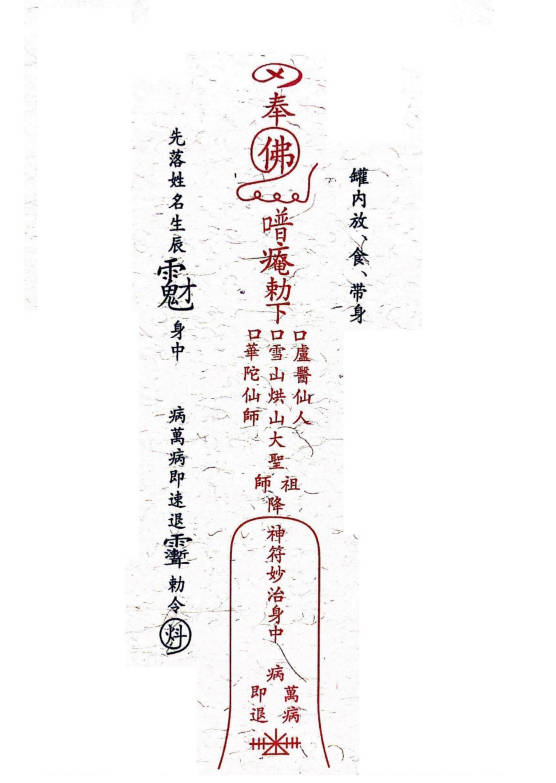 罐内放、食、带身
奉
佛
唵勅下
口盧醫仙人
口雪山烘山大聖
口華陀仙師
祖師
降
神符妙治身中
病
萬病
即退
先落姓名生辰
身中
病萬病即速退
勅令